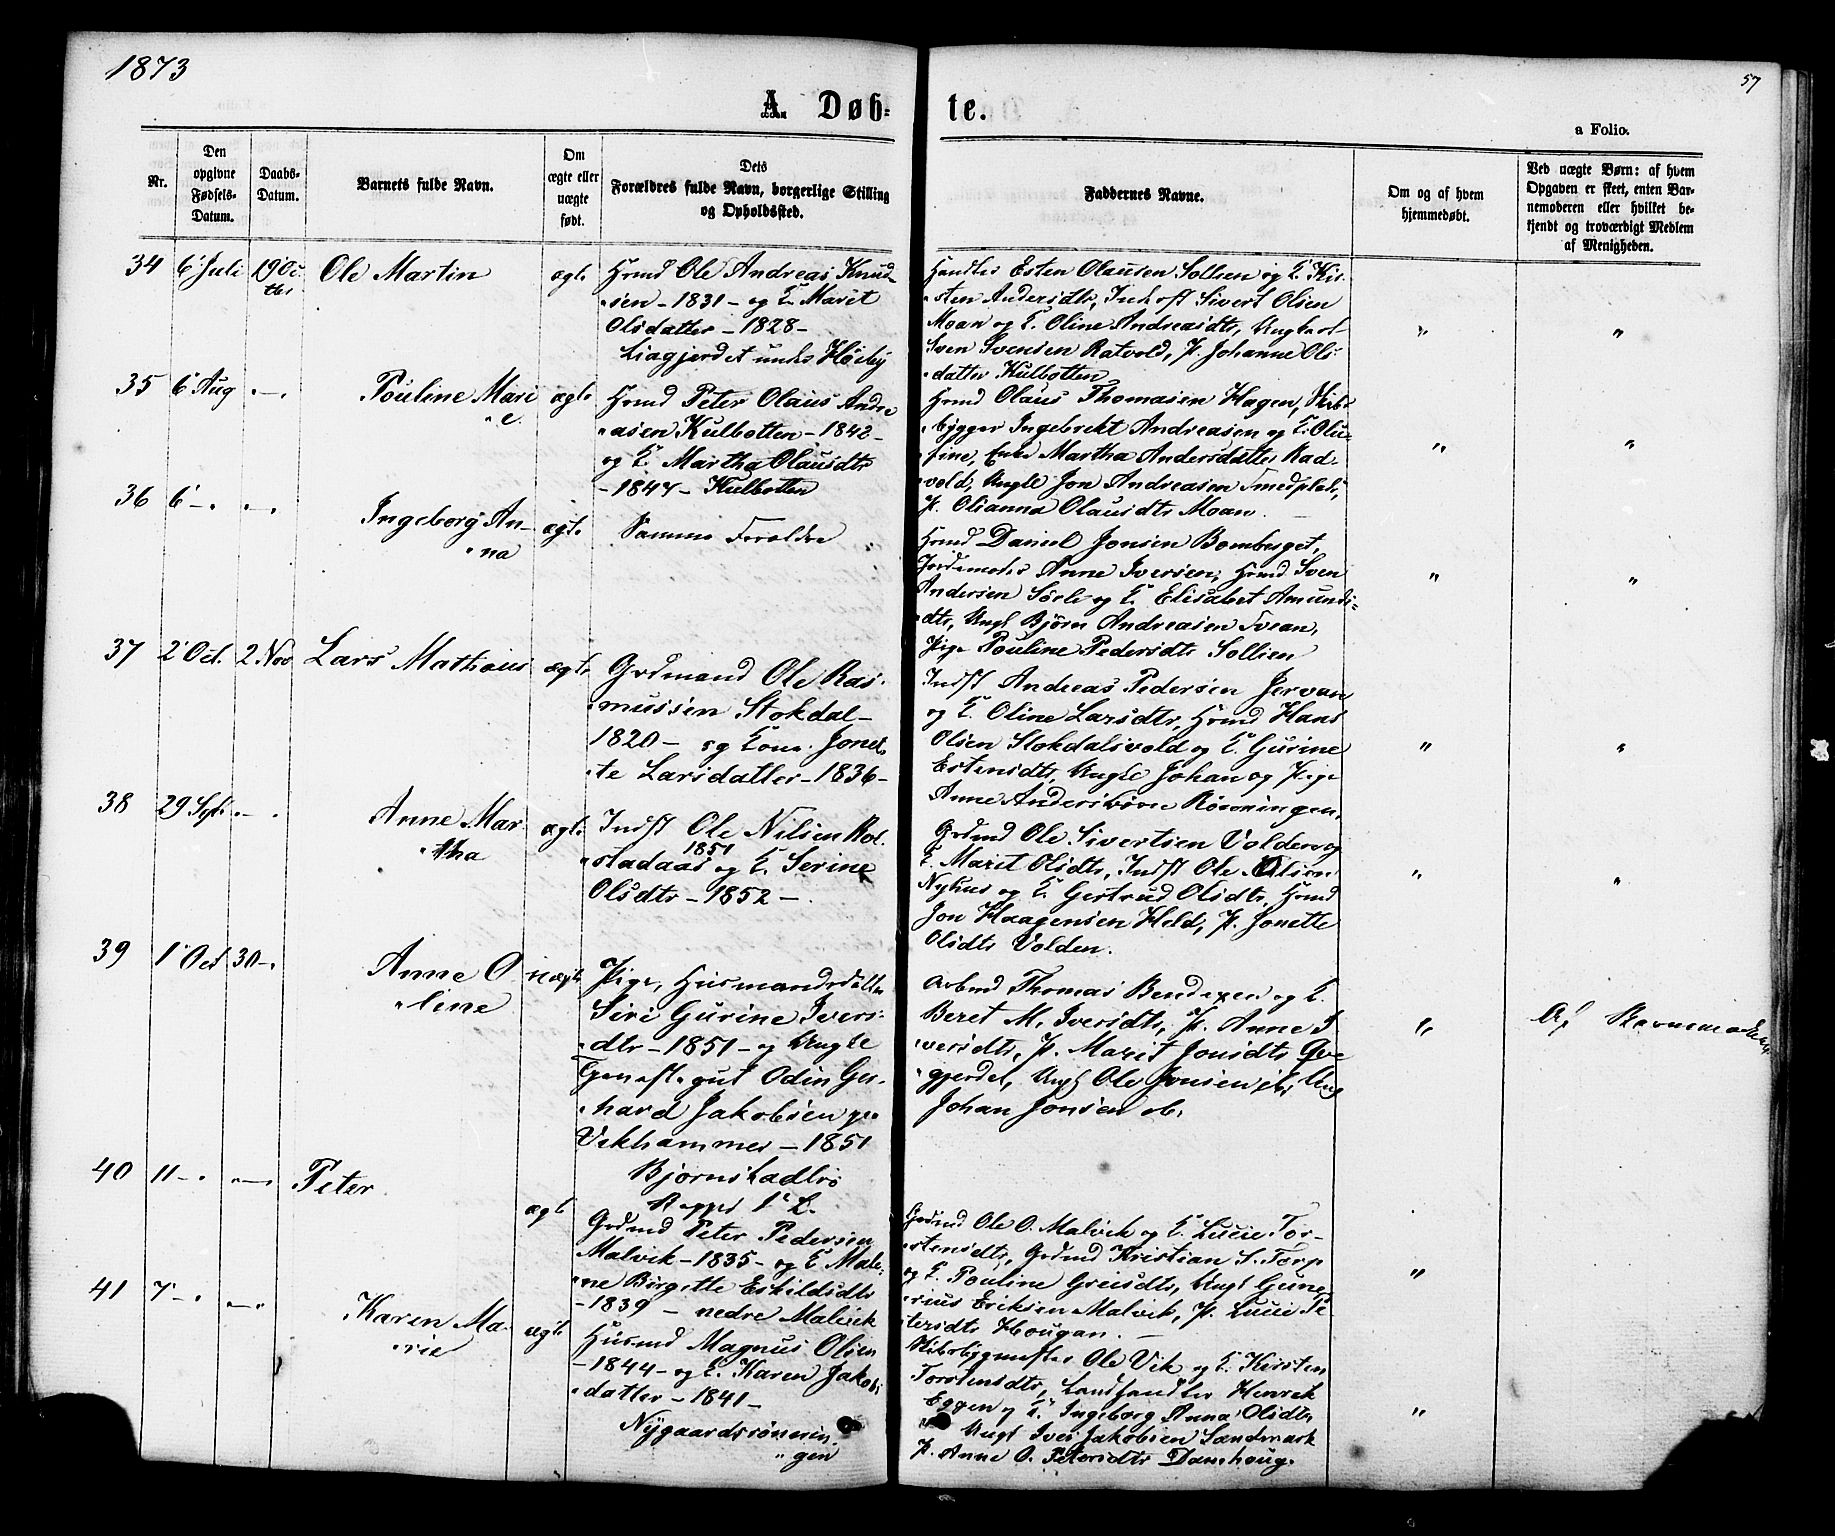 1873
57
A. Døb-
te.
a Folio.
Nr.
Den opgivne Fødsels-Datum.
Daabs-Datum.
Barnets fulde Navn.
Om ægte eller uægte født.
Dets Forældres fulde Navn, borgerlige Stilling og Opholdssted.
Faddernes Navne.
Om og af hvem hjemmedøbt.
Ved uægte Børn: af hvem Opgaven er skeet, enten Barnemoderen eller hvilket bekjendt og troværdigt Medlem af Menigheden.
34 6' Juli 19 Oc
tbr
Ole Martin
ægte
Hsmd Ole Andreas Knud-
sen - 1831 - og E. Marit
Olsdatter - 1828 -
Liagjerdet under Høiby
Esten Olausen Sollien og E. Kir-
sten Andersdtr, Sivert Olsen
Moan og E. Oline Andreasdtr, Ungkarl
Sven Svensen Ratvold, P. Johanne Ols
datter Kulbotten
" "
35 6' Aug - " -
Pouline Mari
e.
ægte
Hsmd Peter Olaus Andre
asen Kulbotten - 1842 -
og E. Martha Olausdtr
- 1847 - Kulbotten
Hsmd Olaus Thomasen Hagen, Skibs
bygger Ingebrekt Andreasen og E. Olu-
fine, Enke Martha Andersdatter Rad-
vold, Ungk Jon Andreasen Smedplads,
P. Olianna Olausdtr Moan.
" "
36 6' - " - " -
Ingeborg An-
na
ægte
Samme Forældre
Hsmd Daniel Jonsen Bomberget,
Jordemoder Anne Iversen, Hsmd Sven
Andersen Sørli og E. Elisabet Amunds-
dtr, Ungk Bjørn Andreasen Svean,
Pige Pouline Pedersdtr Sollien
" "
37 2' Oct. 2 Nov
Lars Mathias
ægte
Grdmand Ole Ras-
mussen Stokdal -
1820 - og Kone Jonet-
te Larsdatter - 1836 -
Indst Andreas Pedersen Jervan
og E. Oline Larsdtr, Hsmd Hans
Olsen Stokdalsvold og E. Gurine
Estensdtr, Ungk Johan og Pige
Anne Andersbørn Rønningen,
" "
38 29 Sptr - " -
Anne Mar-
tha
ægte
Indst Ole Nilsen Rol-
stadaas 1851 og E. Serine
Olsdtr - 1852 -
Grdmd Ole Sivertsen Volden og
E. Marit Olsdtr, Indst Ole Olsen
Nyhus og E. Gertrud Olsdtr, Hsmd
Jon Haagensen Held, P. Jonette
Olsdtr Volden.
" "
39 1' Oct 30 - "
Anne O-
line
uægte
Pige, Husmandsdatter
Siri Gurine Ivers-
dtr - 1851 - og Ungk
Tjenestegut Odin Ger-
hard Jakobsen paa
Vikhammer - 1851
Bjørnstadtrø
Arbmd Thomas Bendixen og E.
Beret M. Iversdtr, P. Anne I
versdtr, P. Marit Jonsdtr
gjerdet, Ungk Ole Jonsen ib, Ung
Johan Jonsen ib.
"
Af Barnemoderen
40 11 - " - " -
Peter
ægte
Grdmd Peter Pedersen
Malvik - 1835 - og E. Male-
ne Birgitte Eskildsdtr
- 1839 - nedre Malvik
Grdmd Ole O. Malvik og E. Lucie Tor-
stensdtr, Grdmd Kristian S. Torp
og E. Pouline Greisdtr, Ungk Gune-
rius Eriksen Malvik, P. Lucie Pe
tersdtr Hougan. -
"
41 7 - " - " -
Karen Ma-
rie
ægte
Husmd Magnus Olsen
- 1844 - og E. Karen Jakobs
datter - 1841 -
Nygaardsrønnin-
gen
Skibsbygmester Ole Vik og E. Kirsten
Torstensdtr, Landhandler Henrik
Eggen og E. Ingeborg Anna Olsdtr
Ungk Iver Jakobsen Sandmark
P. Anne O. Petersdtr Damhaug.
"